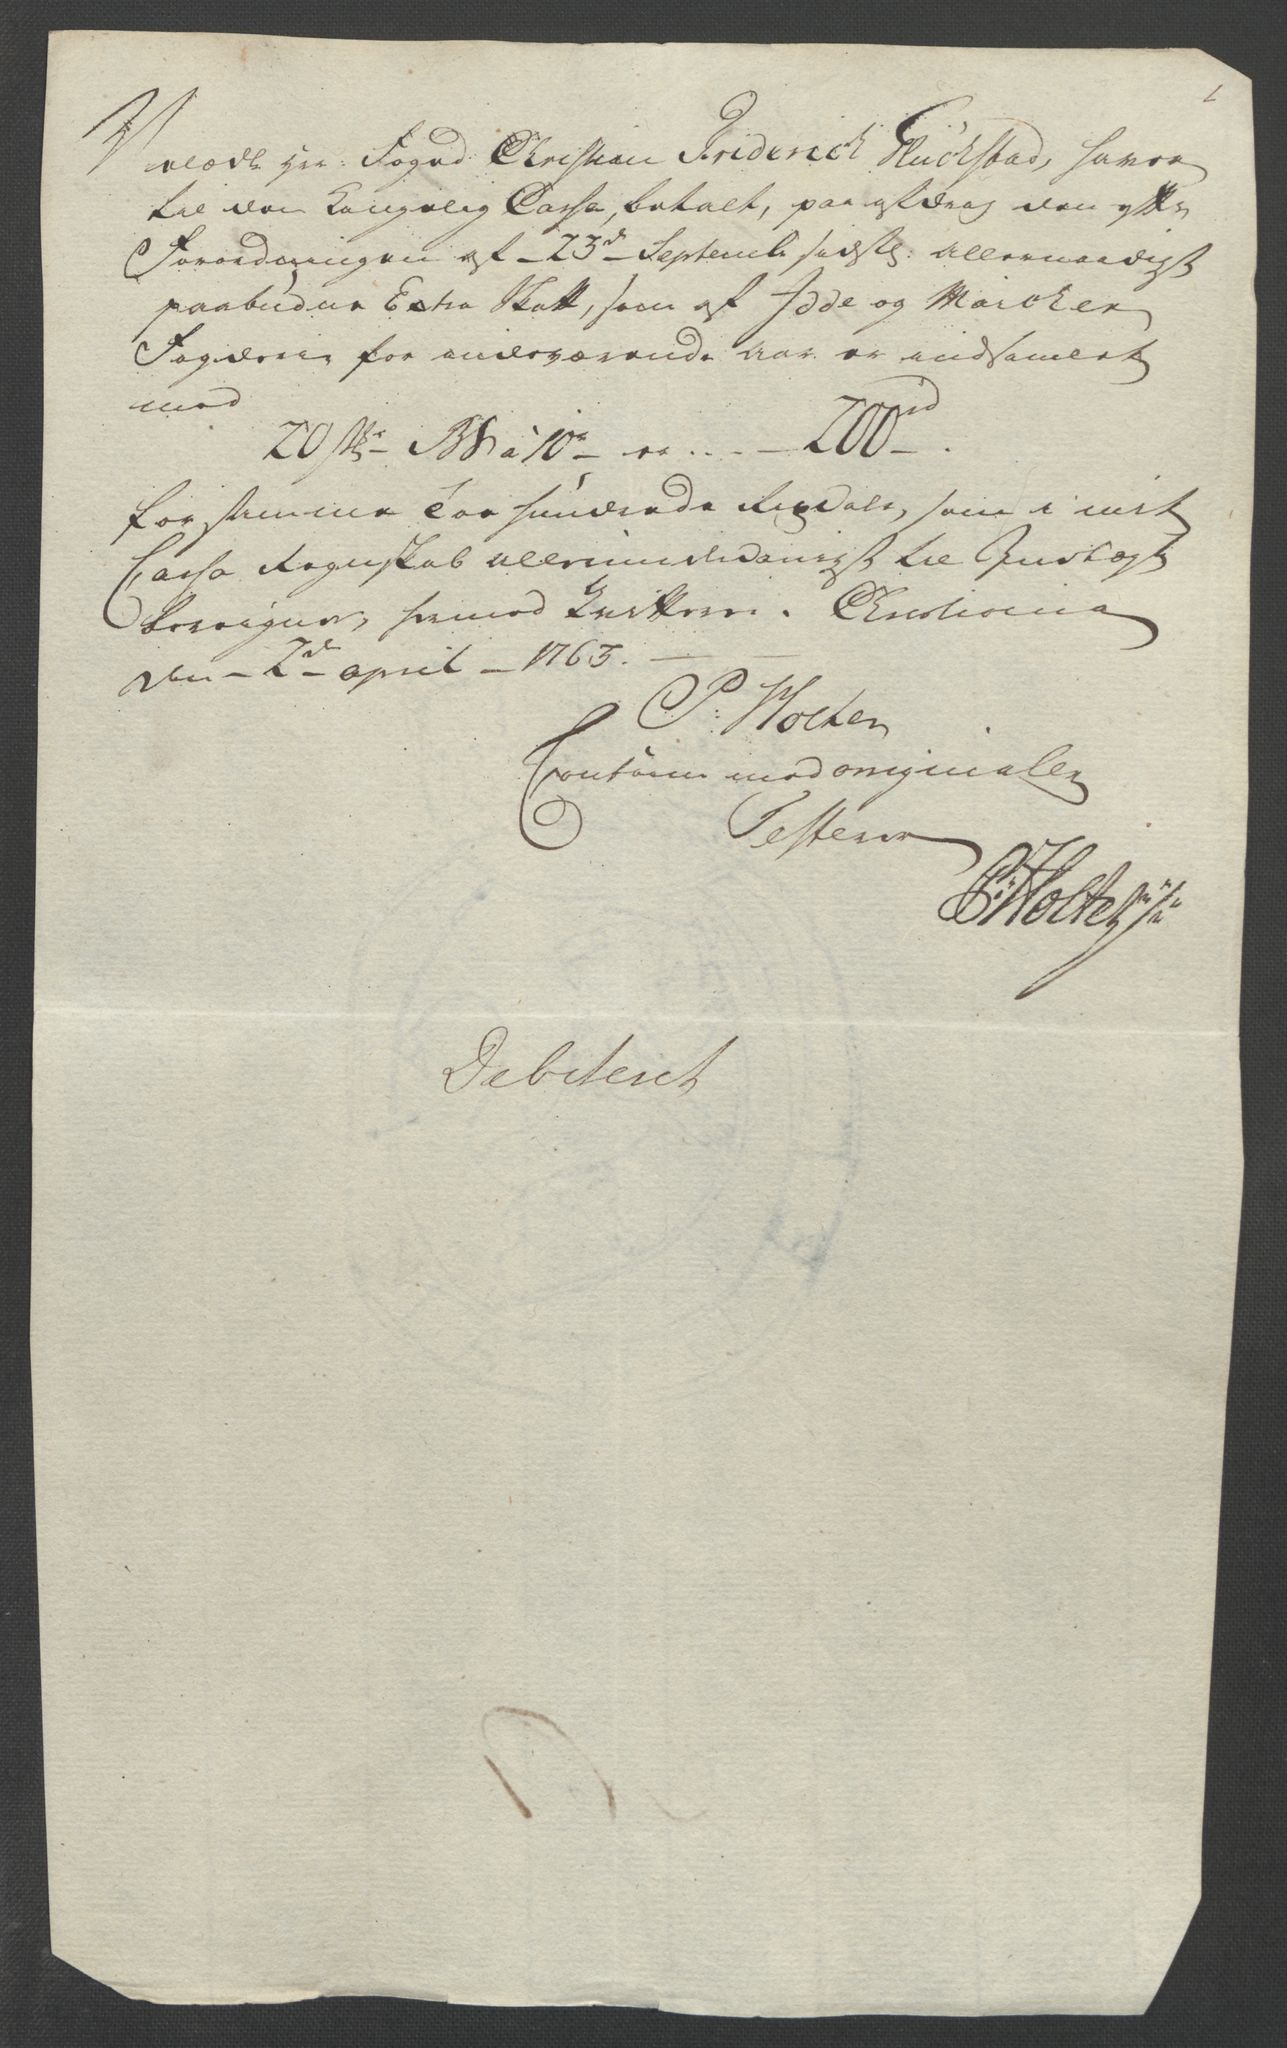 1
Velædle Hr: Foged Christian Friderich Glückstad, haver
til den Kongelig Cassa betalt, paa afdrag den efter
Forordningen af 23de Septembr sidstl: allernaadigst
paabudne Extra Skatt, som af Idde og Marcker
Fogderie for inderværende aar er indsamlet
med
20 stkr B: à 10rd er .... 200rd.
for hvilcke Toe hundrede Rixdaler, som i mit
Cassa Regnskab allerunderdanigst til Indtægt
beregner, hermed Qvitterer. Christiania
den 2de april 1763.
P: Holter
Conform med originalen
Testerer
P: Holter
Debiteret